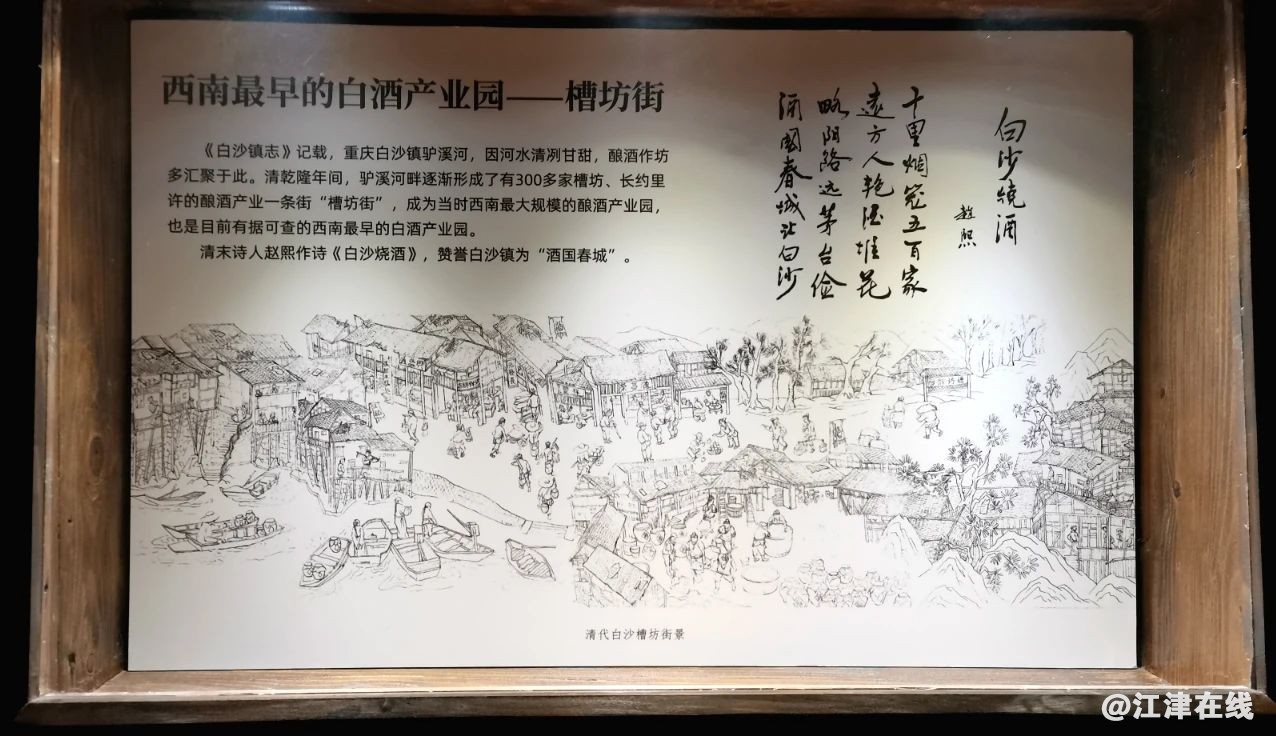 西南最早的白酒产业园——槽坊街
《白沙镇志》记载，重庆白沙镇驴溪河，因河水清冽甘甜，酿酒作坊
多汇聚于此。清乾隆年间，驴溪河畔逐渐形成了有300多家槽坊、长约里
许的酿酒产业一条街“槽坊街”，成为当时西南最大规模的酿酒产业园，
也是目前有据可查的西南最早的白酒产业园。
清末诗人赵熙作诗《白沙烧酒》，赞誉白沙镇为“酒国春城”。
白沙烧酒
赵熙
十里烟笼五百家
远方人艳酒堆花
略阳路远茅台俭
酒国春城让白沙
清代白沙槽坊街景
@江津在线